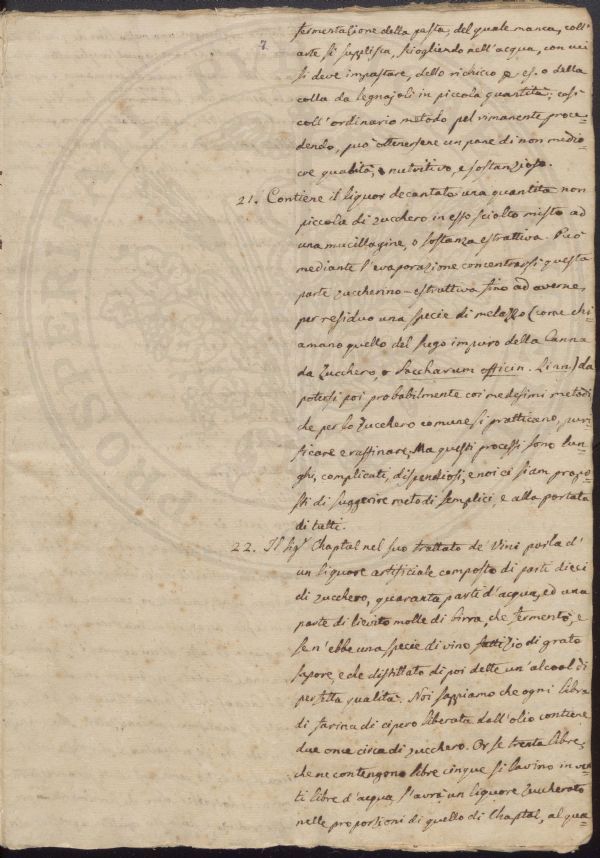 7.
fermentazione della pasta, del quale manca, coll'
arte si supplisca, sciogliendo nell'acqua, con cui
si deve impastare, dello zibibbo p. es. o della
colla da legnajoli in piccola quantità; così
coll'ordinario metodo pel rimanente proce-
dendo, può ottenersene un pane di non medio-
cre qualità, nutritivo, e sostanzioso.
21. Contiene il liquor decantato una quantità non
piccola di zucchero in esso sciolto misto ad
una mucillagine, o sostanza estrattiva. Può
mediante l'evaporazione concentrarsi questa
parte zuccherino-estrattiva fino ad averne,
per residuo una specie di melazzo (come chi-
amano quello del sugo impuro della Canna
da Zucchero, o Saccharum officin. Linn.) da
potersi poi probabilmente coi medesimi metodi,
che per lo Zucchero comune si pratticano, puri-
ficare e raffinare; Ma questi processi sono lun-
ghi, complicati, dispendiosi, e noi ci siam propo-
sti di suggerire metodi semplici, e alla portata
di tutti.
22. Il Sigr Chaptal nel suo trattato de' Vini parla d'
un liquore artificiale composto di parti dieci
di zucchero, quaranta parti d'acqua, ed una
parte di lievito molle di birra, che fermentò, e
se n'ebbe una specie di vino fattizio di grato
sapore, e che distillato di poi dette un'alcool di
perfetta qualità. Noi sappiamo che ogni libra
di farina di cipero liberata dall'olio contiene
due once circa di zucchero. Or se trenta libre,
che ne contengono libre cinque si lavino in ven-
ti libre d'acqua s'avrà un liquore zuccherato
nelle proporzioni di quello di Chaptal, al qua-